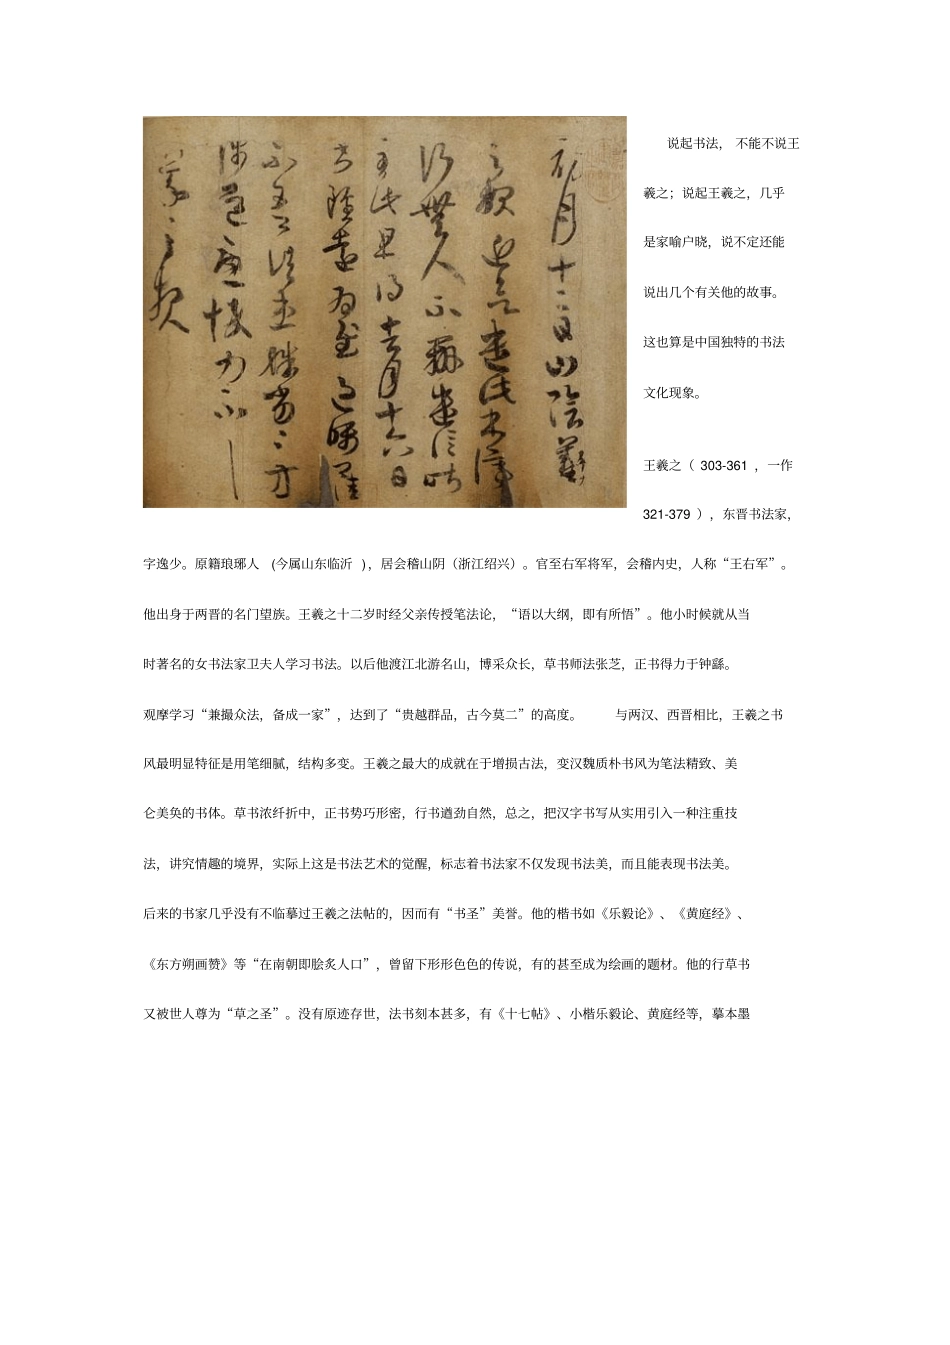 初月十二日山陰羲
之報近欲遣此書停
行無人不辦遣信昨
至此且得去月十六日
書雖遠為慰過囑
不吾諸患殊劣〻方
涉道憂悴力不一
羲之報
说起书法， 不能不说王
羲之；说起王羲之，几乎
是家喻户晓，说不定还能
说出几个有关他的故事。
这也算是中国独特的书法
文化现象。
王羲之（ 303-361 ，一作
321-379 ），东晋书法家，
字逸少。原籍琅琊人 (今属山东临沂 )，居会稽山阴（浙江绍兴）。官至右军将军，会稽内史，人称“王右军”。
他出身于两晋的名门望族。王羲之十二岁时经父亲传授笔法论，“语以大纲，即有所悟”。他小时候就从当
时著名的女书法家卫夫人学习书法。以后他渡江北游名山，博采众长，草书师法张芝，正书得力于钟繇。
观摩学习“兼撮众法，备成一家”，达到了“贵越群品，古今莫二”的高度。 与两汉、西晋相比，王羲之书
风最明显特征是用笔细腻，结构多变。王羲之最大的成就在于增损古法，变汉魏质朴书风为笔法精致、美
仑美奂的书体。草书浓纤折中，正书势巧形密，行书遒劲自然，总之，把汉字书写从实用引入一种注重技
法，讲究情趣的境界，实际上这是书法艺术的觉醒，标志着书法家不仅发现书法美，而且能表现书法美。
后来的书家几乎没有不临摹过王羲之法帖的，因而有“书圣”美誉。他的楷书如《乐毅论》、《黄庭经》、
《东方朔画赞》等“在南朝即脍炙人口”，曾留下形形色色的传说，有的甚至成为绘画的题材。他的行草书
又被世人尊为“草之圣”。没有原迹存世，法书刻本甚多，有《十七帖》、小楷乐毅论、黄庭经等，摹本墨